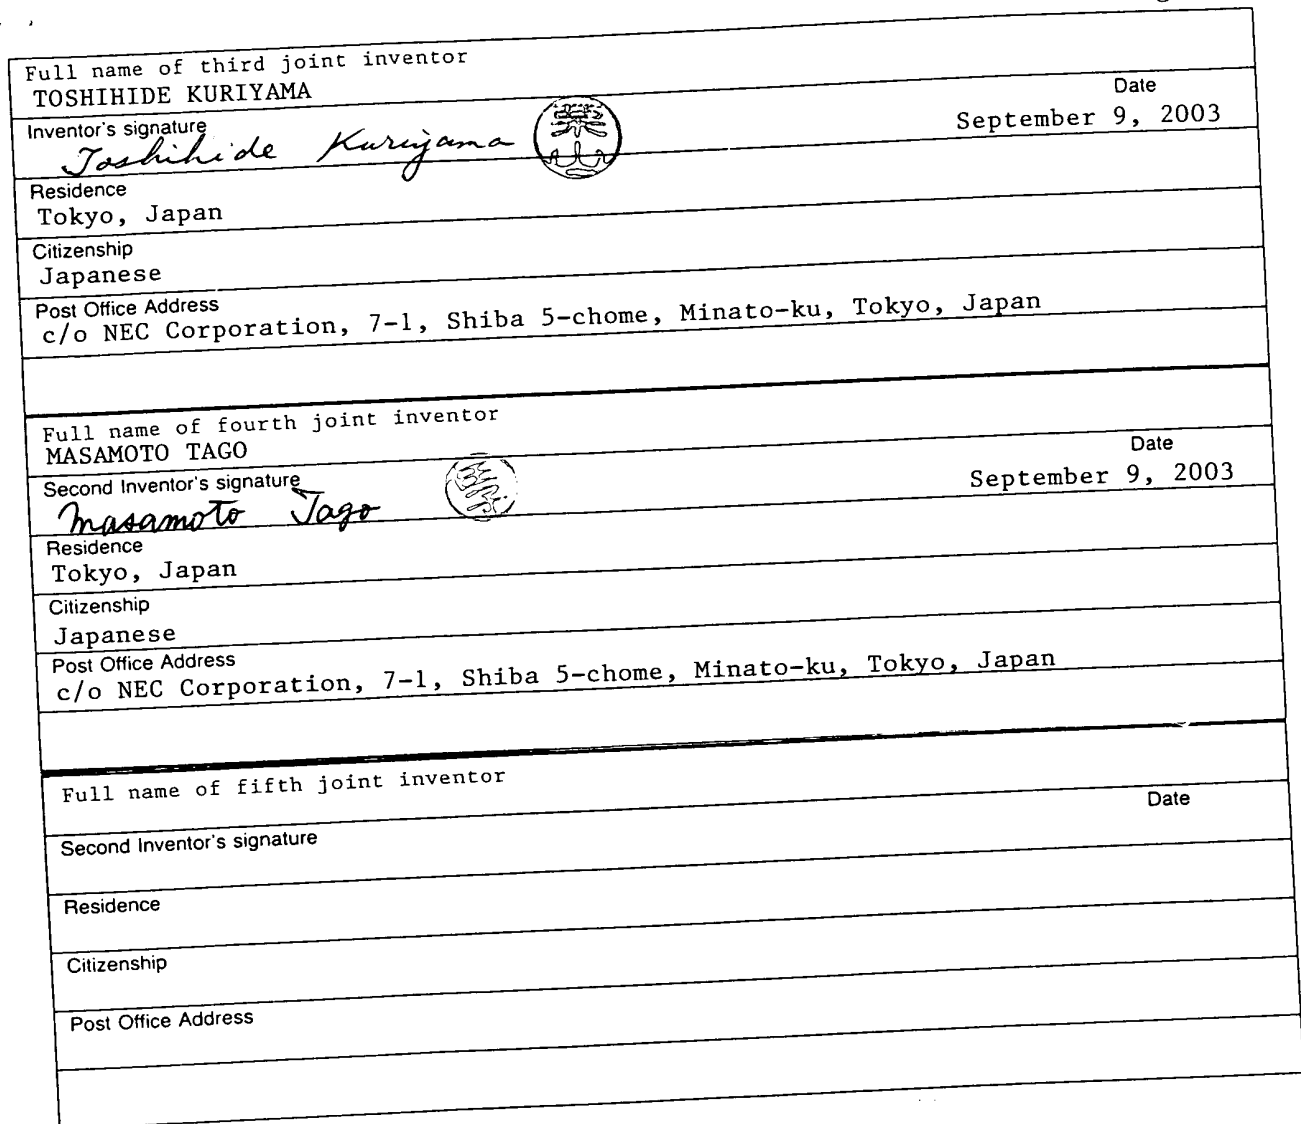 Full name of third joint inventor
TOSHIHIDE KURIYAMA
Date
Inventor's signature
September 9, 2003
Toshihide Kuriyama
Residence
Tokyo, Japan
Citizenship
Japanese
Post Office Address
c/o NEC Corporation, 7-1, Shiba 5-chome, Minato-ku, Tokyo, Japan
Full name of fourth joint inventor
MASAMOTO TAGO
Date
Second Inventor's signature
September 9, 2003
Masamoto Tago
Residence
Tokyo, Japan
Citizenship
Japanese
Post Office Address
c/o NEC Corporation, 7-1, Shiba 5-chome, Minato-ku, Tokyo, Japan
Full name of fifth joint inventor
Date
Second Inventor's signature
Residence
Citizenship
Post Office Address